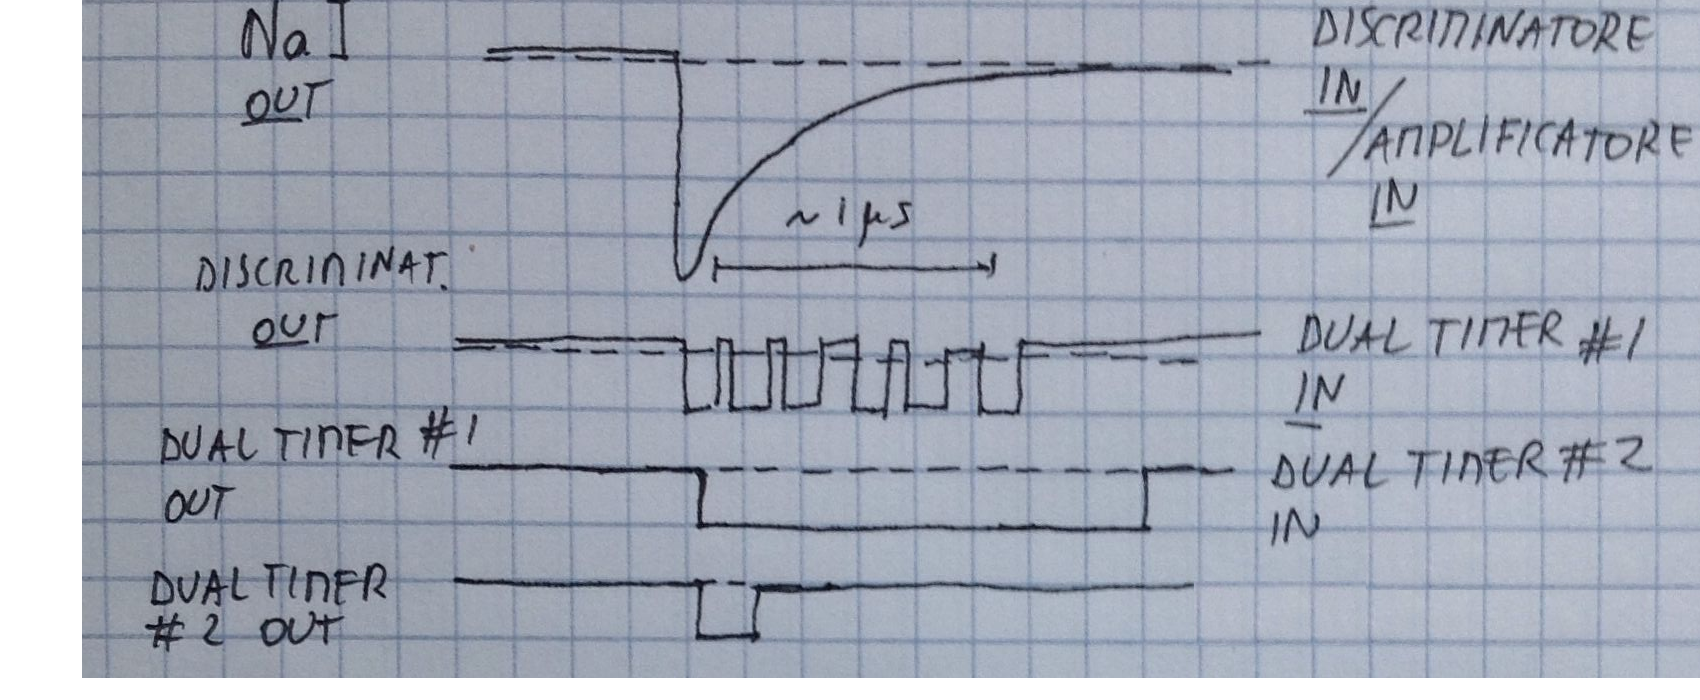 NaI
OUT
DISCRIMINATORE
IN/
AMPLIFICATORE
IN
~1μs
DISCRIMINAT.
OUT
DUAL TIMER #1
IN
DUAL TIMER #1
OUT
DUAL TIMER #2
IN
DUAL TIMER
#2 OUT